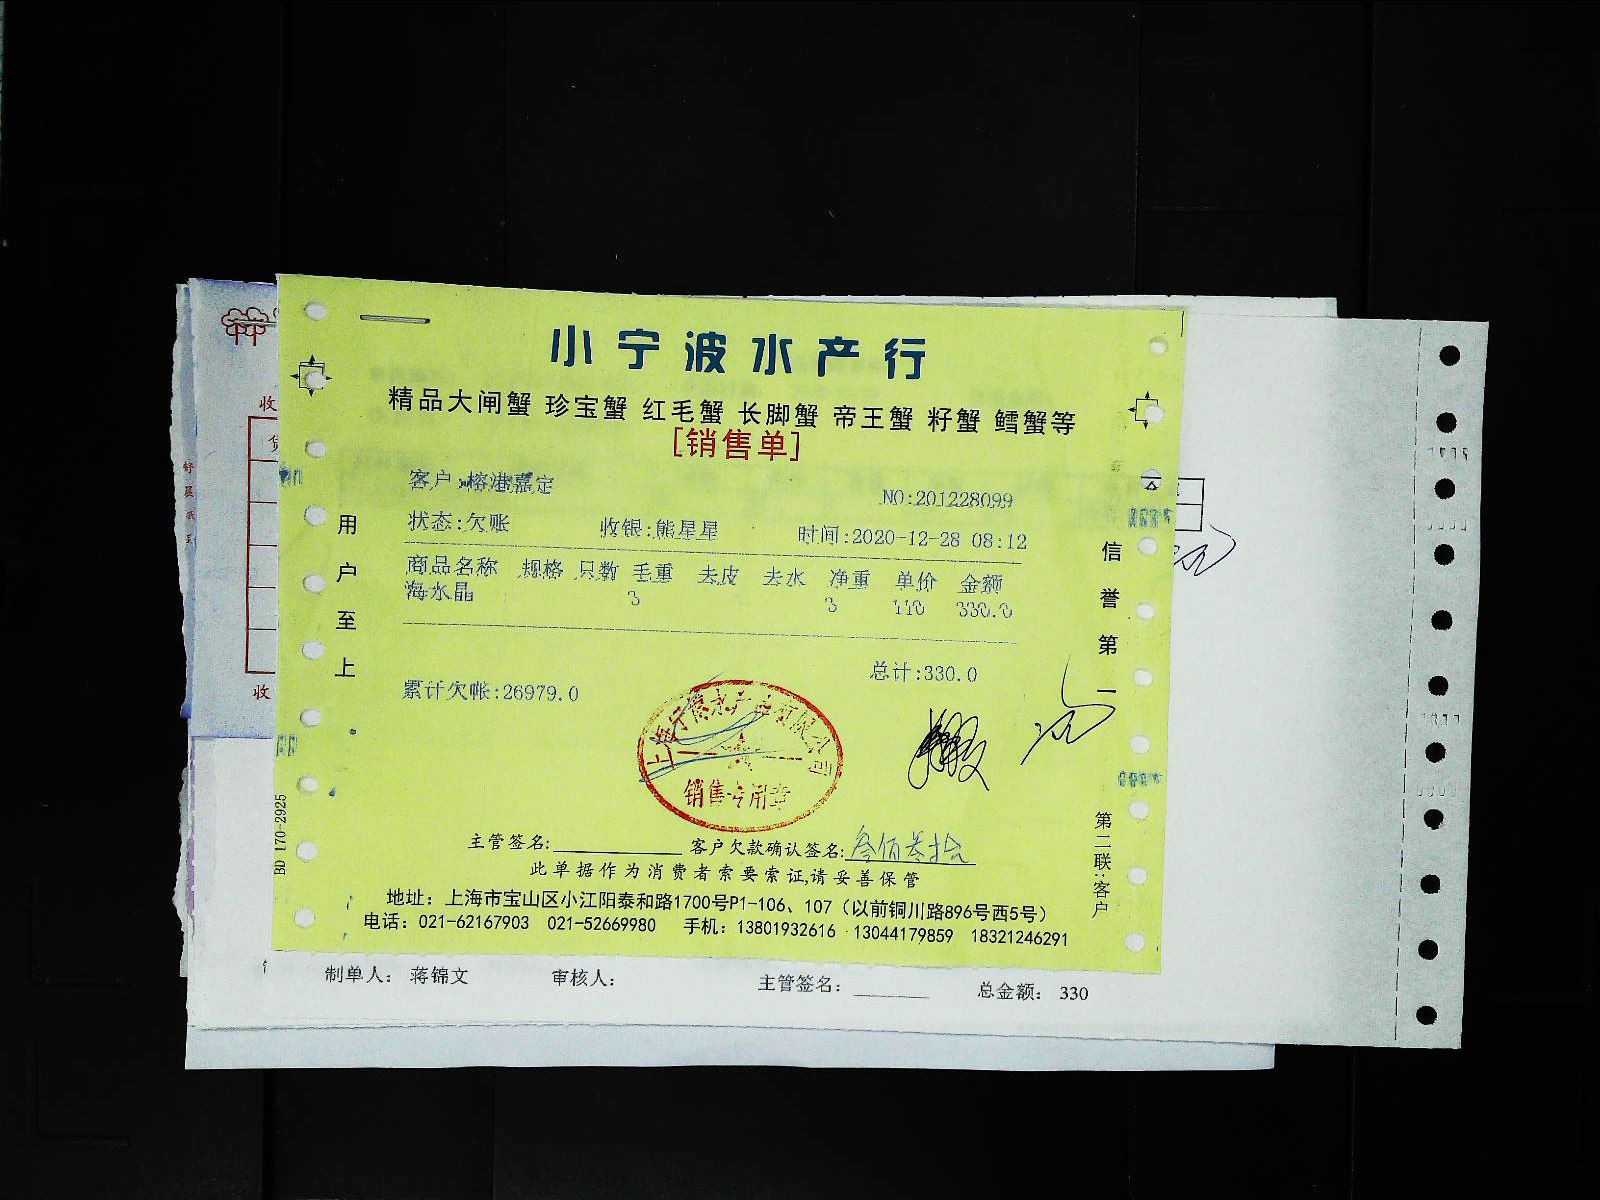 小宁波水产行
精品大闸蟹 珍宝蟹 红毛蟹 长脚蟹 帝王蟹 籽蟹 鳕蟹等
[销售单]
客户:榕港嘉定
NO:201228099
状态:欠账 收银:熊星星 时间:2020-12-28 08:12
商品名称 规格 只数 毛重 去皮 去水 净重 单价 金额
海水晶 3 3 110 330.0
总计:330.0
累计欠帐:26979.0
销售专用章
主管签名: 客户欠款确认签名:叁佰叁拾
此单据作为消费者索要索证,请妥善保管
地址：上海市宝山区小江阳泰和路1700号P1-106、107（以前铜川路896号西5号）
电话：021-62167903 021-52669980 手机：13801932616 13044179859 18321246291
用户至上
信誉第一
第二联:客户
BD 170-2925
收
收
制单人： 蒋锦文 审核人： 主管签名： 总金额： 330